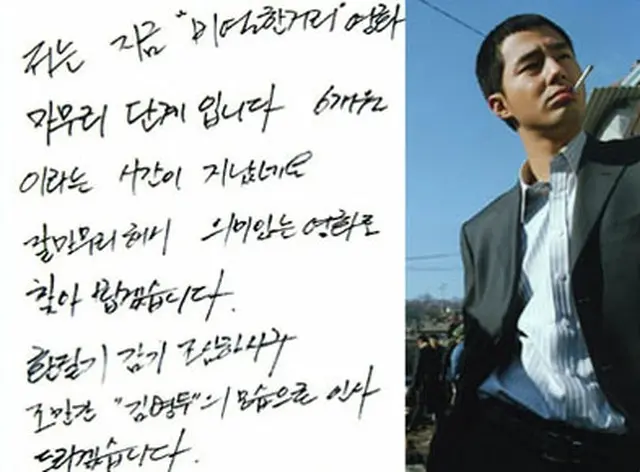 저는 지금 "비열한거리" 영화
마무리 단계 입니다 6개월
이라는 시간이 지났네요
잘마무리해서 의미있는 영화로
찾아 뵙겠습니다.
환절기 감기 조심하시구
조만간 "김병두"의 모습으로 인사
드리겠습니다.